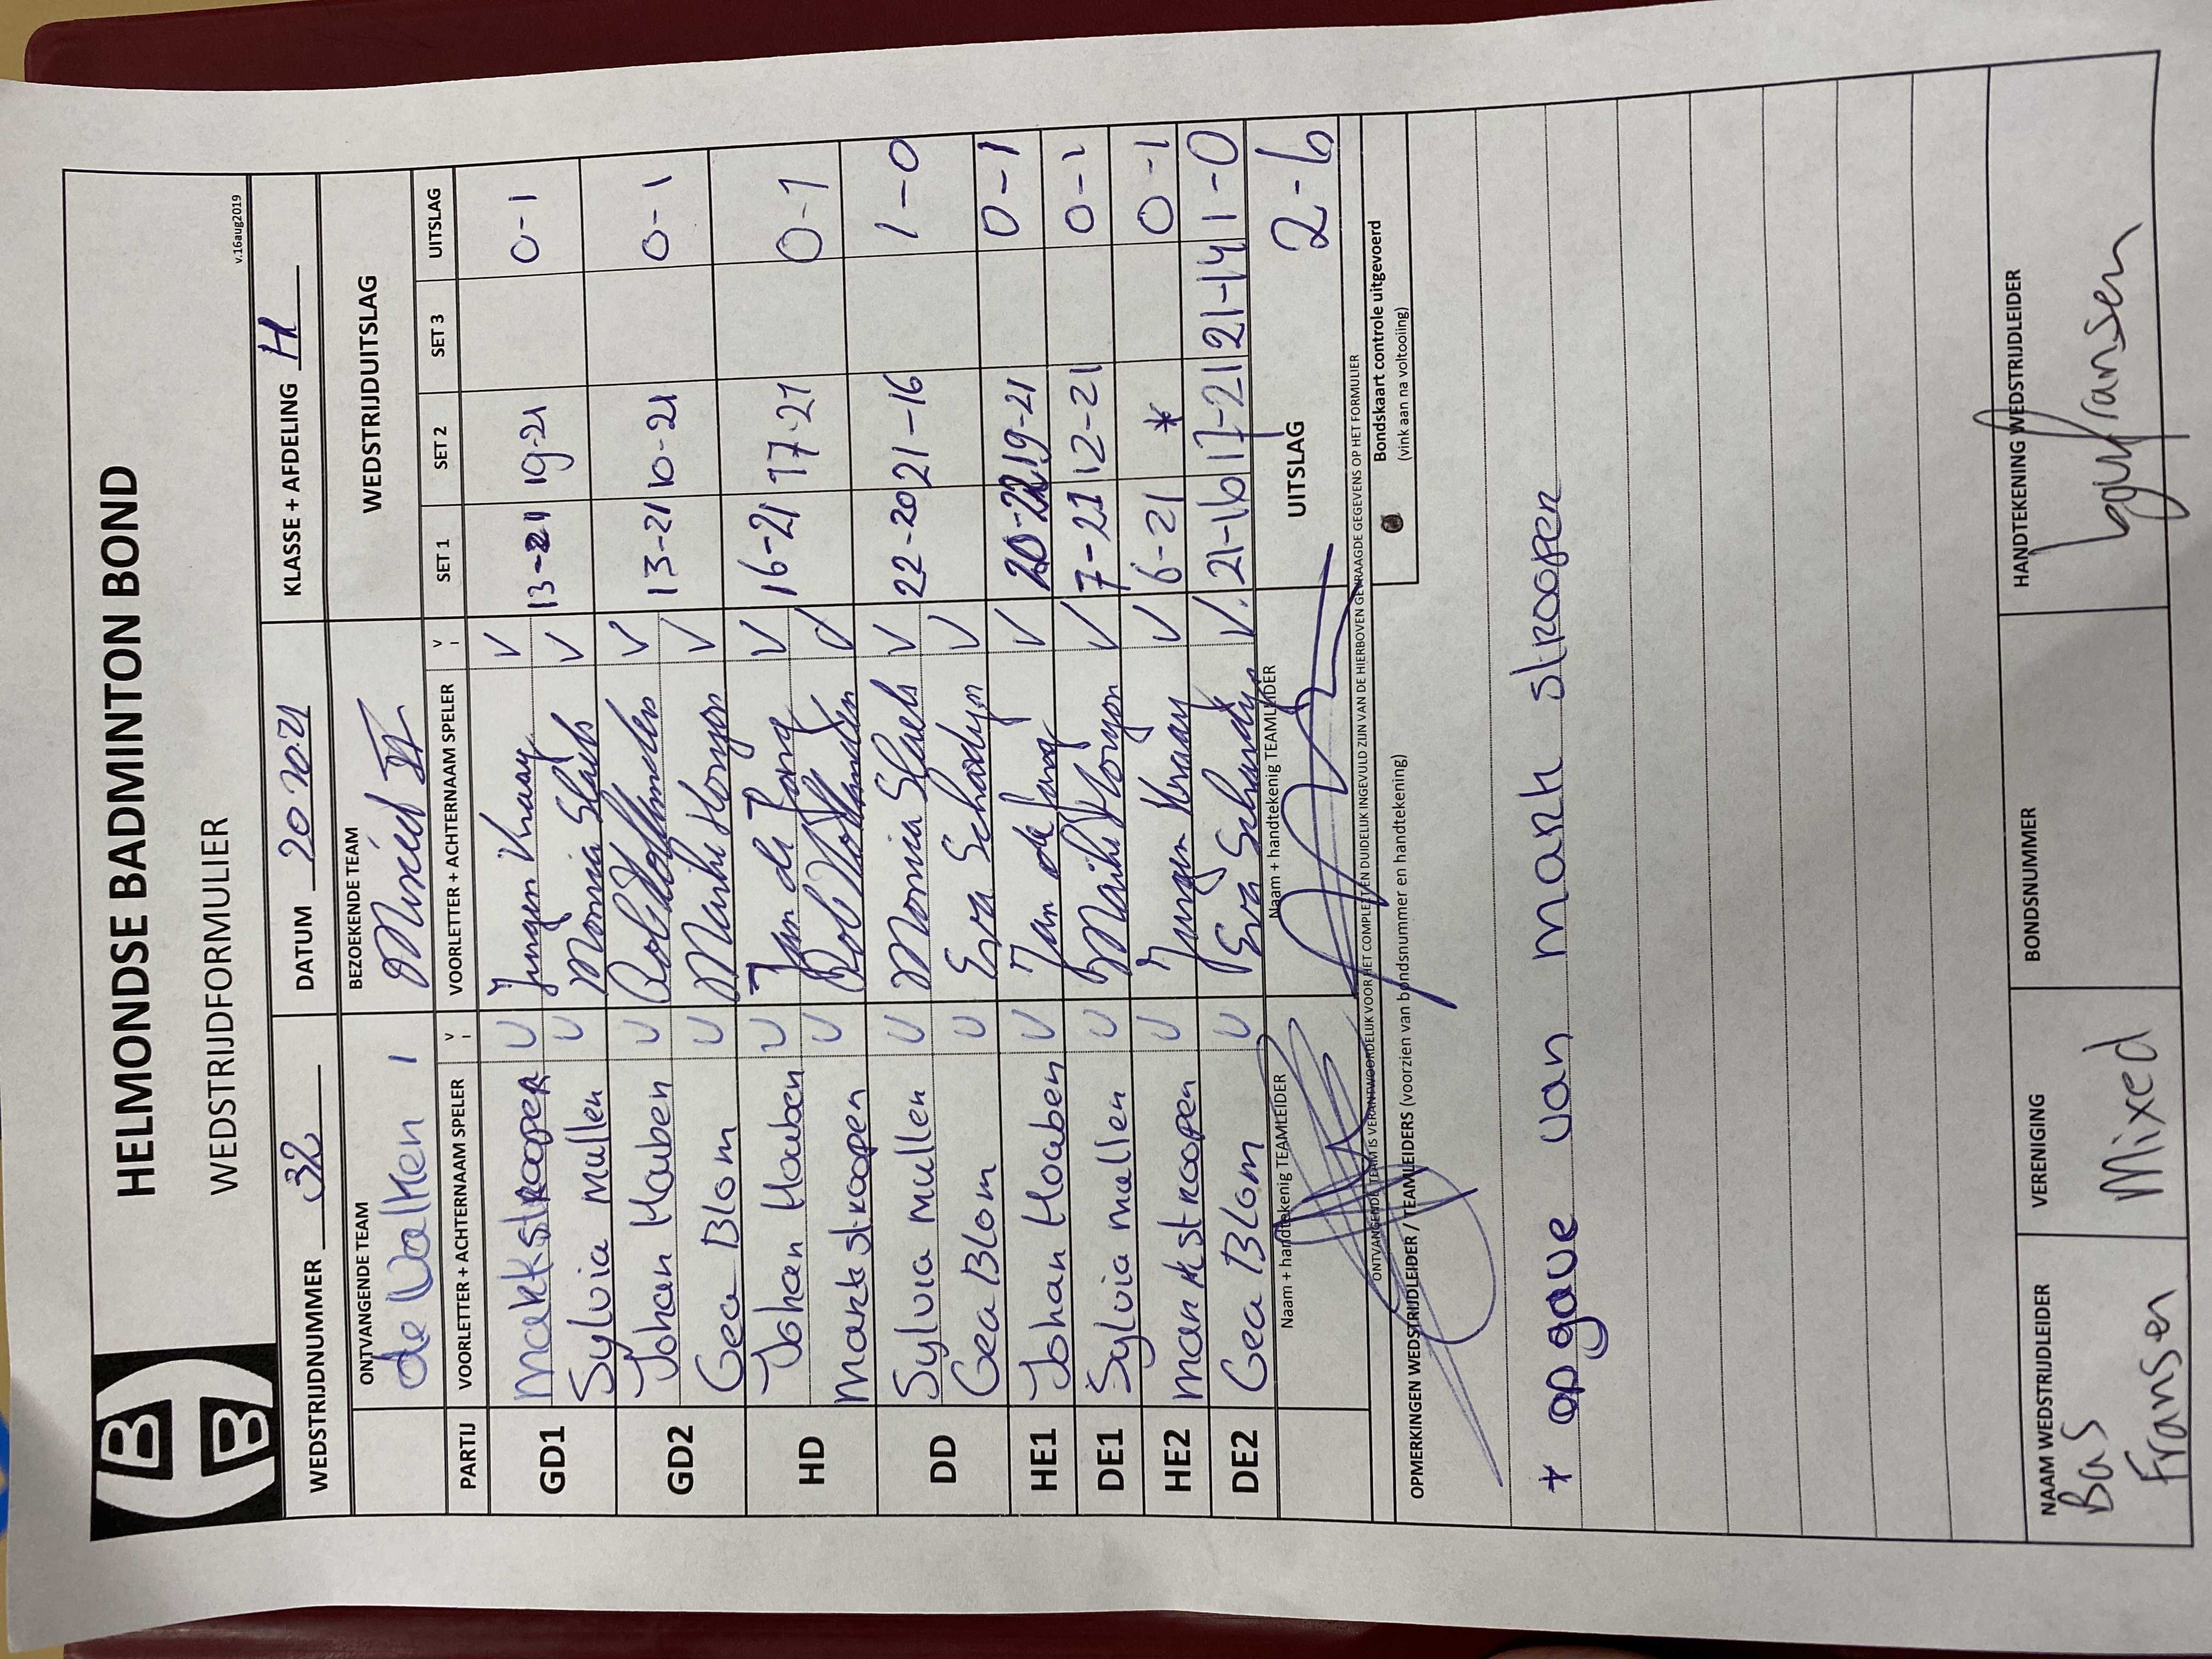 HELMONDSE BADMINTON BOND
WEDSTRIJDFORMULIER
v.16aug2019
WEDSTRIJDNUMMER 32 DATUM 20 10.21 KLASSE + AFDELING H
ONTVANGENDE TEAM BEZOEKENDE TEAM WEDSTRIJDUITSLAG
de Valken 1 Mixed VI
PARTIJ VOORLETTER + ACHTERNAAM SPELER V VOORLETTER + ACHTERNAAM SPELER V SET 1 SET 2 SET 3 UITSLAG
GD1 Mark Strooper V Jurgen Kraay V 13-21 19-21 0-1
Sylvia Mullen V Monia Slaets V
GD2 Johan Houben V Rob Hollanders V 13-21 10-21 0-1
Gea Blom V V
HD Johan Houben V Jan de Jong V 16-21 17-21 0-1
Mark Stroopen V Rob Hollanders V
DD Sylvia Mullen V Monia Slaets V 22-20 21-16 1-0
Gea Blom V Eva V
HE1 Johan Houben V Jan de Jong V 20-22 19-21 0-1
DE1 Sylvia Mullen V V 7-21 12-21 0-1
HE2 Mark Stroopen V Jurgen Kraay V 6-21 * 0-1
DE2 Gea Blom V Eva V. 21-16 17-21 21-14 1-0
Naam + handtekenig TEAMLEIDER Naam + handtekenig TEAMLEIDER UITSLAG 2-6
ONTVANGENDE TEAM IS VERANTWOORDELIJK VOOR HET COMPLEET EN DUIDELIJK INGEVULD ZIJN VAN DE HIERBOVEN GEVRAAGDE GEGEVENS OP HET FORMULIER
Bondskaart controle uitgevoerd
(vink aan na voltooiing)
OPMERKINGEN WEDSTRIJDLEIDER / TEAMLEIDERS (voorzien van bondsnummer en handtekening)
* opgave van Mark Stroopen
NAAM WEDSTRIJDLEIDER VERENIGING BONDSNUMMER HANDTEKENING WEDSTRIJDLEIDER
Bas Mixed
Fransen